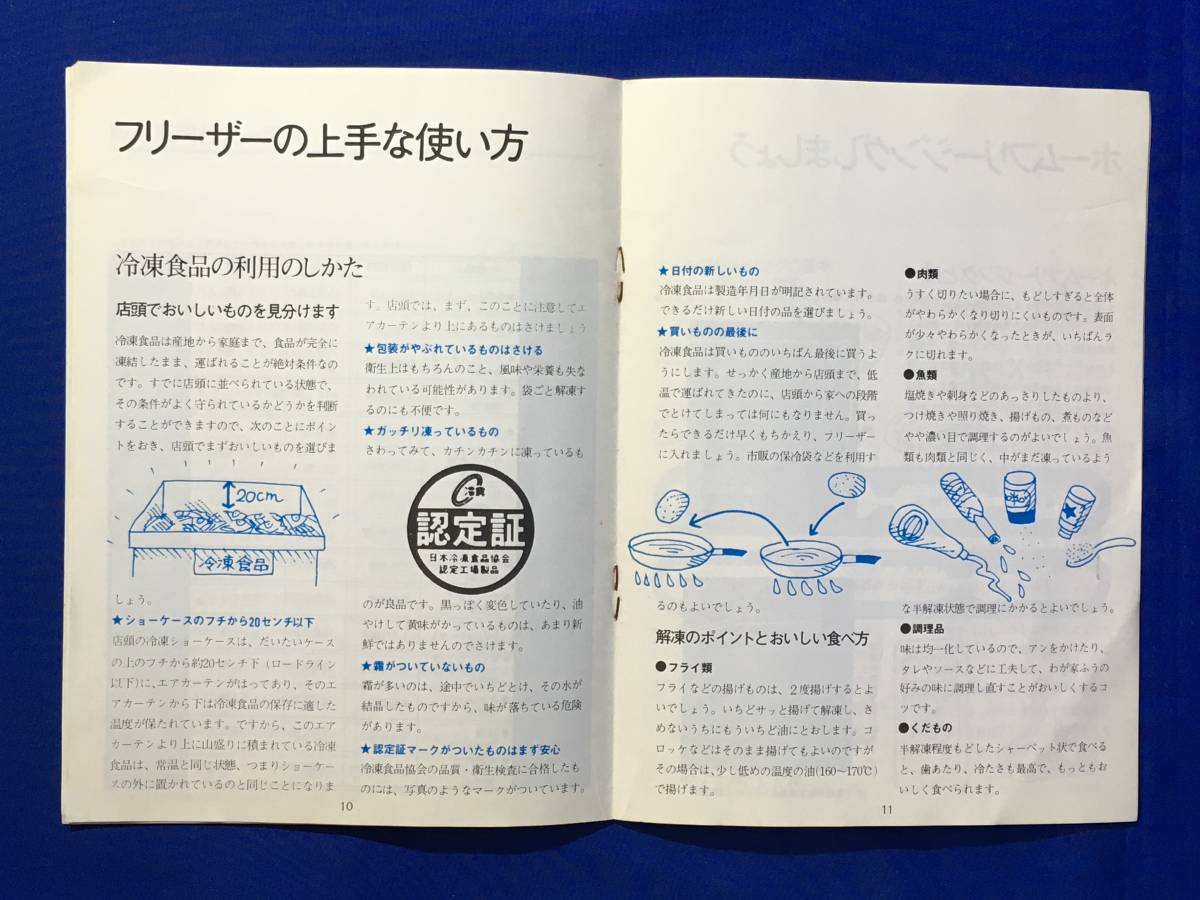 フリーザーの上手な使い方
冷凍食品の利用のしかた
店頭でおいしいものを見分けます
冷凍食品は産地から家庭まで、食品が完全に
凍結したまま、運ばれることが絶対条件なの
です。すでに店頭に並べられている状態で、
その条件がよく守られているかどうかを判断
することができますので、次のことにポイン
トをおき、店頭でまずおいしいものを選びま
20cm
冷凍食品
しょう。
★ショーケースのフチから20センチ以下
店頭の冷凍ショーケースは、だいたいケース
の上のフチから約20センチ下(ロードライン
以下)に、エアカーテンがはってあり、そのエ
アカーテンから下は冷凍食品の保存に適した
温度が保たれています。ですから、このエア
カーテンより上に山盛りに積まれている冷凍
食品は、常温と同じ状態、つまりショーケー
スの外に置かれているのと同じことになりま
す。店頭では、まず、このことに注意してエ
アカーテンより上にあるものはさけましょう
★包装がやぶれているものはさける
衛生上はもちろんのこと、風味や栄養も失な
われている可能性があります。袋ごと解凍す
るのにも不便です。
★ガッチリ凍っているもの
さわってみて、カチンカチンに凍っているも
冷食
認定証
日本冷凍食品協会
認定工場製品
のが良品です。黒っぽく変色していたり、油
やけして黄味がかっているものは、あまり新
鮮ではありませんのでさけます。
★霜がついていないもの
霜が多いのは、途中でいちどとけ、その水が
結晶したものですから、味が落ちている危険
があります。
★認定証マークがついたものはまず安心
冷凍食品協会の品質・衛生検査に合格したも
のには、写真のようなマークがついています。
10
★日付の新しいもの
冷凍食品は製造年月日が明記されています。
できるだけ新しい日付の品を選びましょう。
★買いものの最後に
冷凍食品は買いもののいちばん最後に買うよ
うにします。せっかく産地から店頭まで、低
温で運ばれてきたのに、店頭から家への段階
でとけてしまっては何にもなりません。買っ
たらできるだけ早くもちかえり、フリーザー
に入れましょう。市販の保冷袋などを利用す
るのもよいでしょう。
解凍のポイントとおいしい食べ方
●フライ類
フライなどの揚げものは、2度揚げするとよ
いでしょう。いちどサッと揚げて解凍し、さ
めないうちにもういちど油にとおします。コ
ロッケなどはそのまま揚げてもよいのですが
その場合は、少し低めの温度の油(160〜170℃)
で揚げます。
●肉類
うすく切りたい場合に、もどしすぎると全体
がやわらかくなり切りにくいものです。表面
が少々やわらかくなったときが、いちばんラ
クに切れます。
●魚類
塩焼きや刺身などのあっさりしたものより、
つけ焼きや照り焼き、揚げもの、煮ものなど
やや濃い目で調理するのがよいでしょう。魚
類も肉類と同じく、中がまだ凍っているよう
な半解凍状態で調理にかかるとよいでしょう。
●調理品
味は均一化しているので、アンをかけたり、
タレやソースなどに工夫して、わが家ふうの
好みの味に調理し直すことがおいしくするコ
ツです。
●くだもの
半解凍程度もどしたシャーベット状で食べる
と、歯あたり、冷たさも最高で、もっともお
いしく食べられます。
11